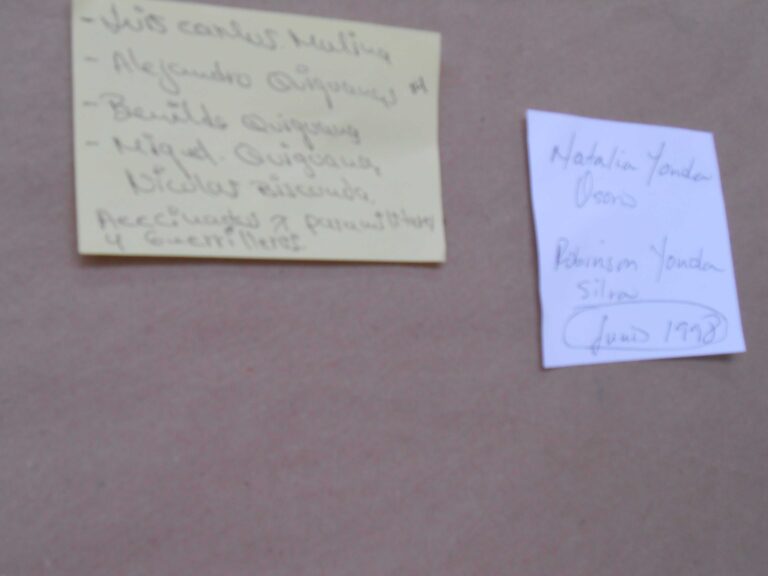 - Luis carlos Molina
- Alejandro Quiguanas
- Benildo Quiguana
- Miguel. Quiguanas
Nicolas
Acecinados x paramilitares
y Guerrilleros
Natalia Yonda
Osorio
Robinson Yonda
Silva
Junio 1998